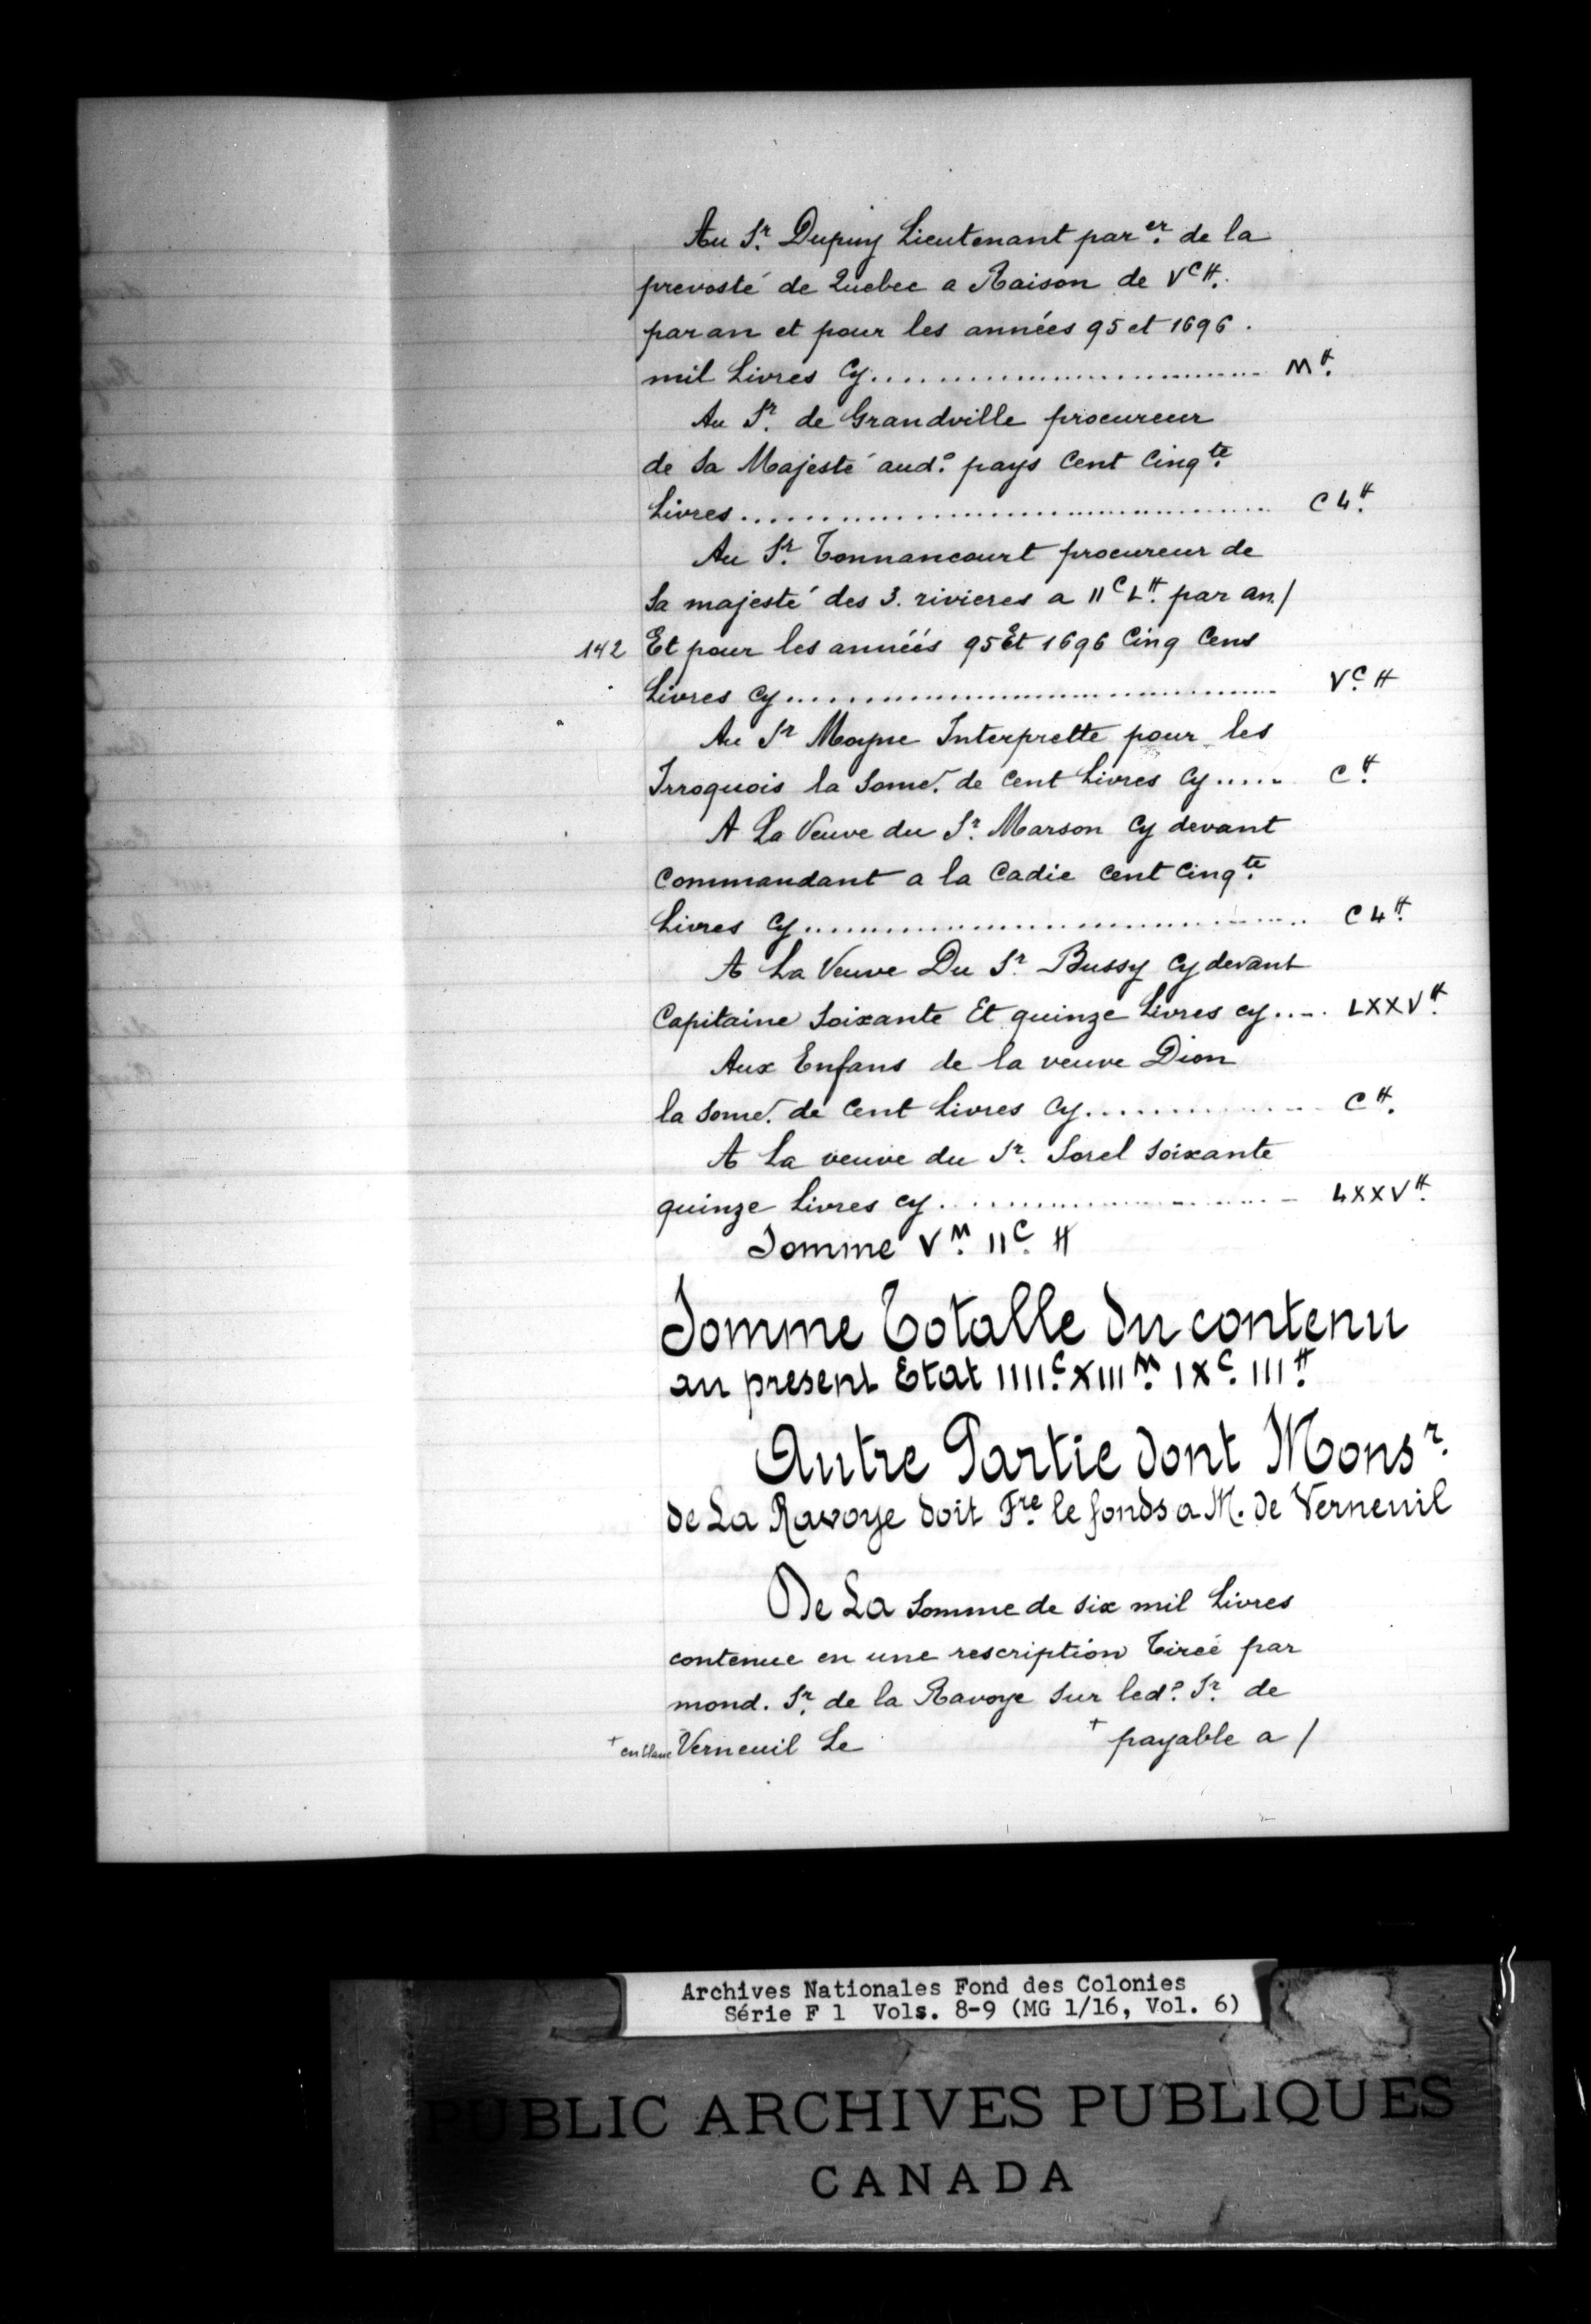 Au Sr. Dupuy Lieutenant par er. de la
prevosté de Quebec a Raison de VC ₶.
par an et pour les années 95 et 1696.
mil Livres Cy.............................. M ₶.
Au Sr. de Grandville procureur
de Sa Majesté aud.o pays Cent Cinqte.
Livres.............................. C L ₶.
Au Sr. Tonnancourt procureur de
Sa majesté des 3. rivieres a IIC L ₶. par an./
142 Et pour les annéés 95 Et 1696 Cinq Cens
Livres Cy.............................. VC. ₶
Au Sr Mayne Interprette pour les
Irroquois la Some. de Cent Livres Cy..... C ₶.
A La Veuve du Sr. Marson Cy devant
Commandant a la Cadie Cent Cinqte.
Livres Cy.............................. C L ₶.
A La Veuve Du Sr. Bussy Cy devant
Capitaine Soixante Et quinze Livres Cy.... LXXV ₶.
Aux Enfans de la veuve Dion
la Some. de Cent Livres Cy.............. C ₶.
A La veuve du Sr. Sorel Soixante
quinze Livres Cy.............................. LXXV ₶.
Somme VM. IIC. ₶
Somme Totalle du contenu
au present Etat IIIIC. XIIIM. IXC. III ₶.
Autre Partie dont Monsr.
de La Ravoye doit Fre. le fonds a M. de Verneuil
De La Somme de six mil Livres
contenue en une rescription Tireé par
mond. Sr. de la Ravoye Sur led.o Sr. de
+ en blanc Verneuil Le + payable a /
Archives Nationales Fond des Colonies
Série F 1 Vols. 8-9 (MG 1/16, Vol. 6)
PUBLIC ARCHIVES PUBLIQUES
CANADA